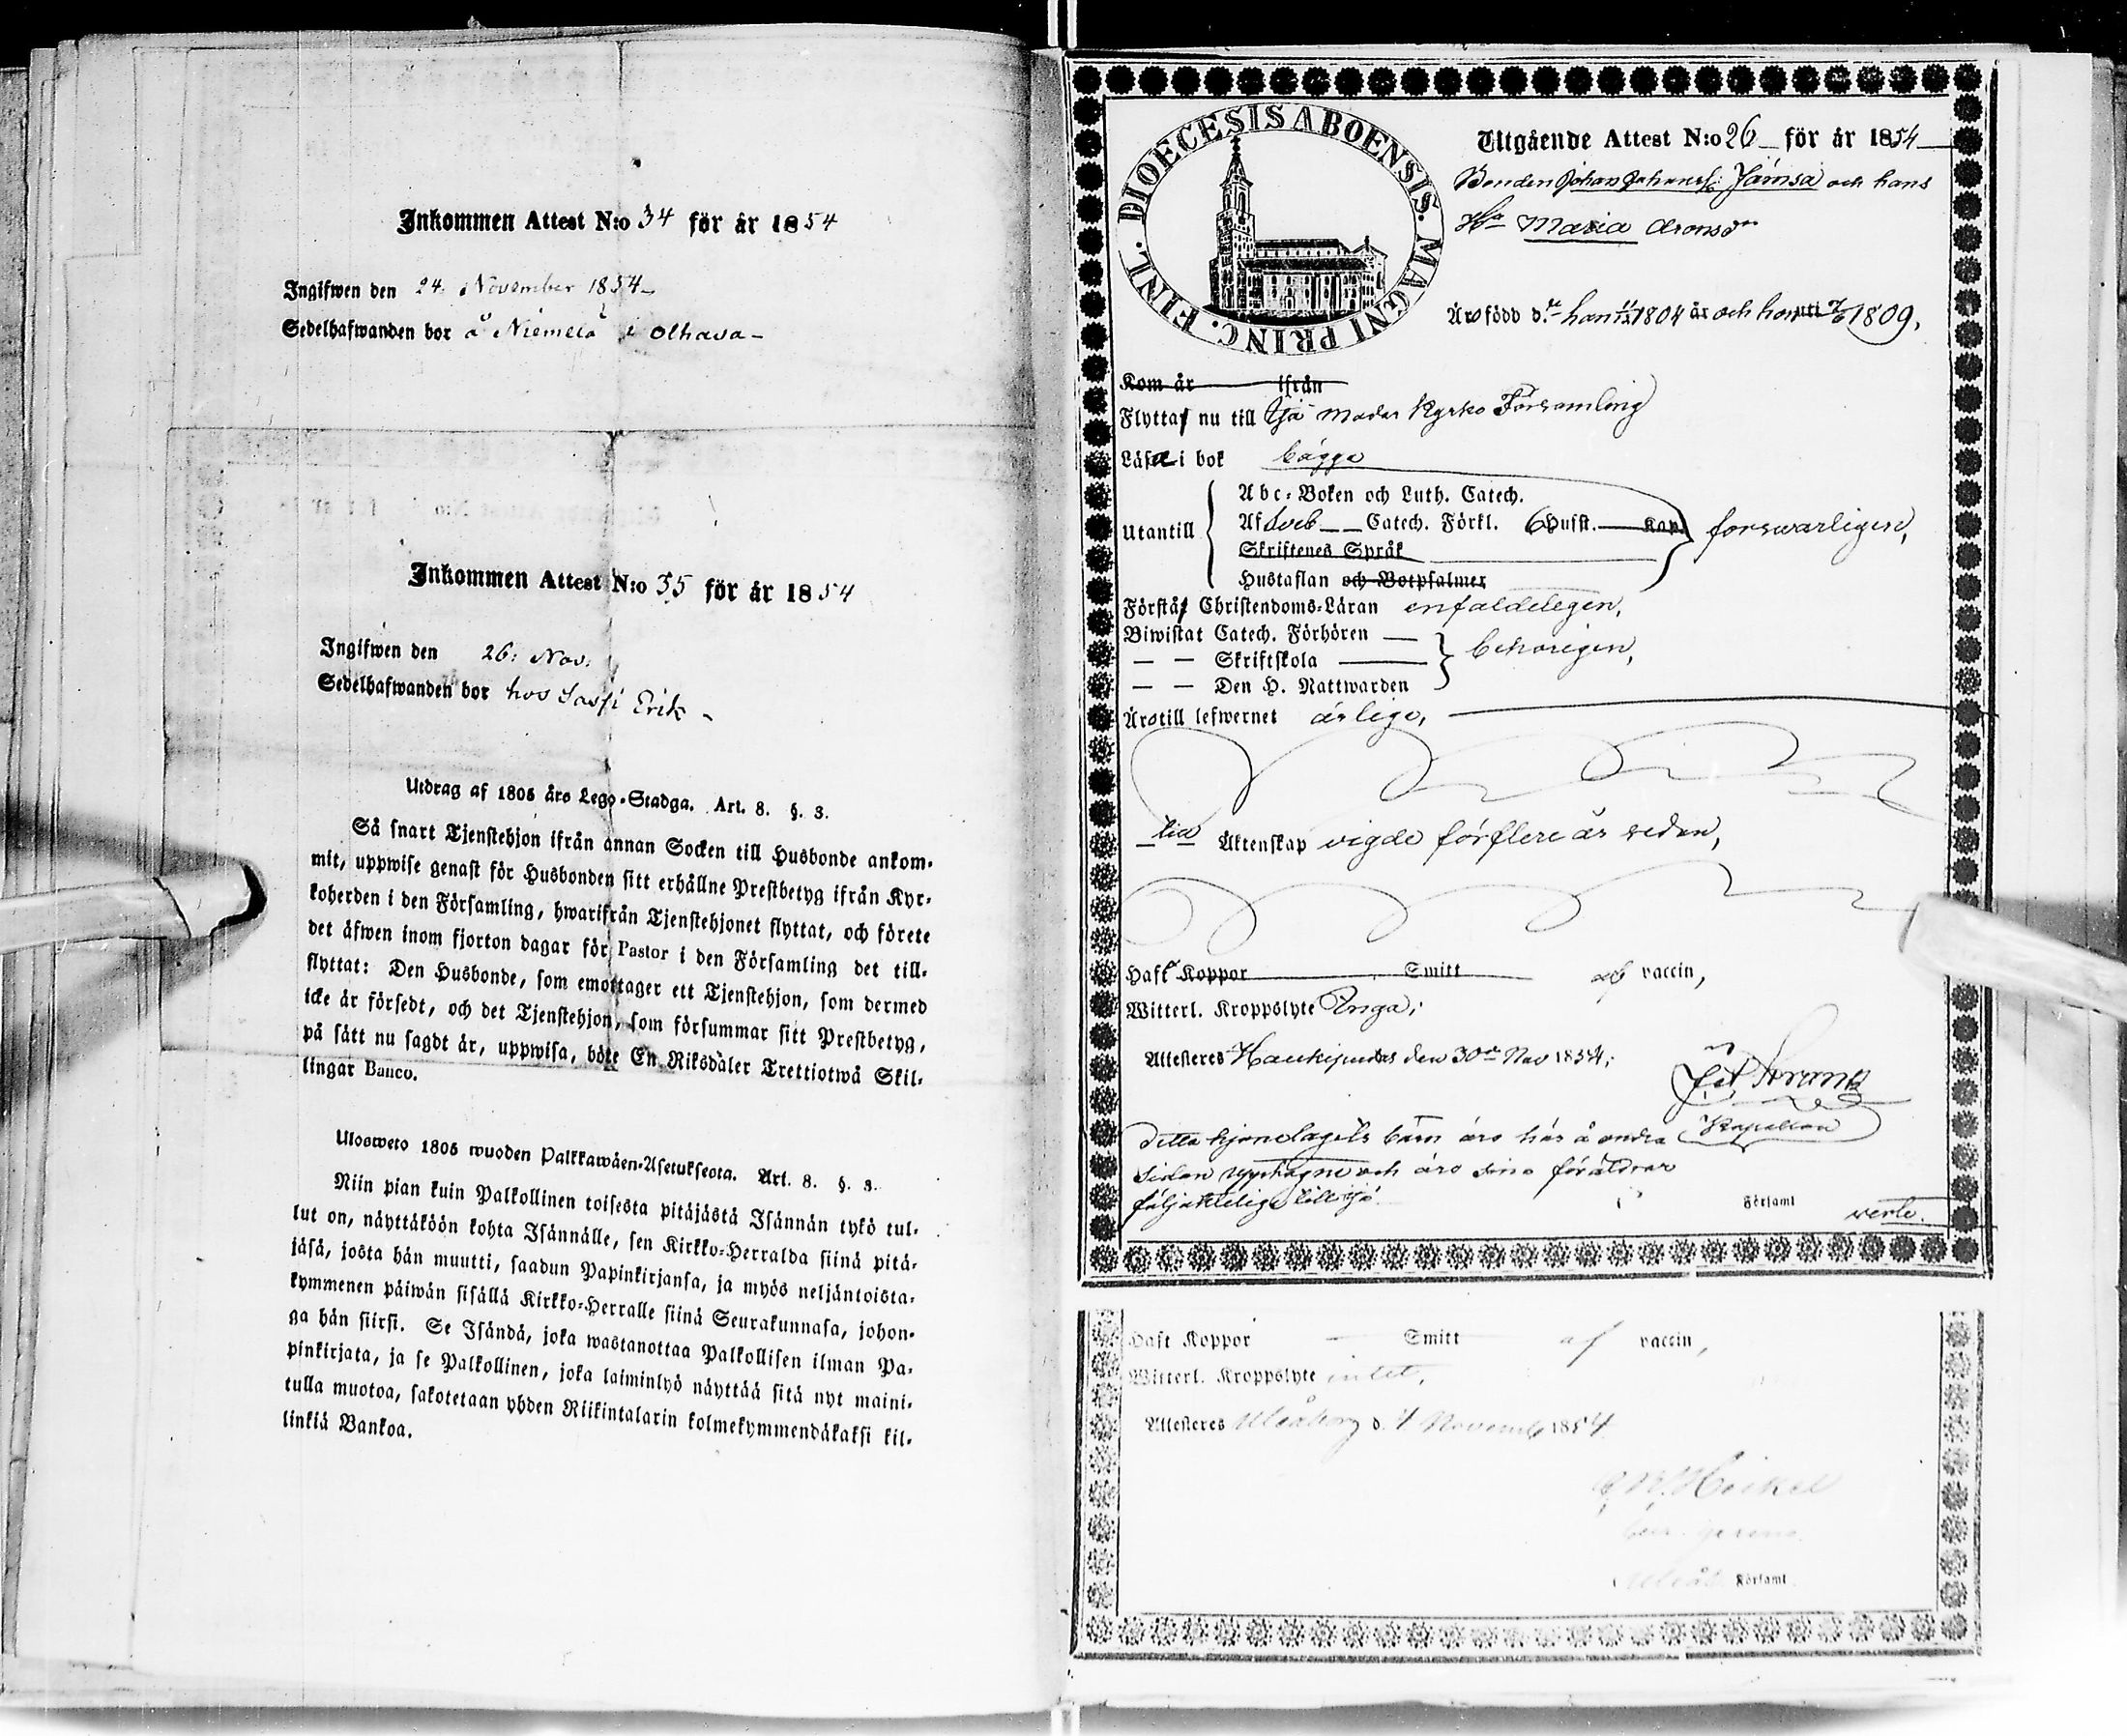 Inkommen Attest N:o 34 för år 1854
Ingifwen den 24. November 1854
Sedelhafwanden bor å Niemelä i Olhava
Inkommen Attest N:o 35 för år 1854
Ingifwen den 26. Nov.
Sedelhafwanden bor hos Sassi Erik
Utdrag af 1805 års Lego-Stadga. Art. 8. §. 3.
Så snart Tjenstehjon ifrån annan Socken till Husbonde ankom-
mit, uppwise genast för Husbonden sitt erhållne Prestbetyg ifrån Kyr-
koherden i den Församling, hwarifrån Tjenstehjonet flyttat, och förete
det äfwen inom fjorton dagar för Pastor i den Församling det till-
flyttat: Den Husbonde, som emottager ett Tjenstehjon, som dermed
icke är försedt, och det Tjenstehjon, som försummar sitt Prestbetyg,
på sätt nu sagdt är, uppwisa, böte En Riksdaler Trettiotwå Skil-
lingar Banco.
Ulosweto 1805 wuoden Palkkawäen-Asetuksesta. Art. 8. §. 3.
Niin pian kuin Palkollinen toisesta pitäjästä Isännän tykö tul-
lut on, näyttäköön kohta Isännälle, sen Kirkko-Herralda siinä pitä-
jäsä, josta hän muutti, saadun Papinkirjansa, ja myös neljäntoista-
kymmenen päiwän sisällä Kirkko-Herralle siinä Seurakunnasa, johon-
ga hän siirsi. Se Isändä, joka wastanottaa Palkollisen ilman Pa-
pinkirjata, ja se Palkollinen, joka laiminlyö näyttää sitä nyt maini-
tulla muotoa, sakotetaan yhden Riikintalarin kolmekymmendäkaksi kil-
linkiä Bankoa.
DIOECESIS ABOENSIS. MAGNI PRINC. FINL.
Utgående Attest N:o 26 för år 1854
Bonden Johan Johanss. Jämsä och hans
Hu Maria Aronsdr
Äro född d. han 1804 är och hon 1809.
Kom år ifrån
Flytta nu till Ijo Moder Kyrko Församling
Läsa i bok bägge
Utantill
Abc-Boken och Luth. Catech.
Af Sveb Catech. Förkl. 6 Hufst. Kap.
Skriftenes Språk
Hustaflan och Botpsalmer
forswarligen,
Förstå Christendoms-Läran enfaldeligen,
Biwistat Catech. Förhören
— — Skriftskola
— — Den H. Nattwarden
behörigen,
Äro till lefwernet ärlige,
Äktenskap vigde för flere år sedan,
Haft Koppor Smitt af vaccin,
Witterl. Kroppslyte Inga;
Attesteras Haukipudas den 30de Nov 1854;
Kapellan
Detta hjonelagets barn äro här å andra
sidan upptagne och äro sina föräldrar
följaktelige till Ijo
Församl
verte.
Haft Koppor Smitt af vaccin,
Witterl. Kroppslyte intet,
Attesteres Uleåborg d. 4 Novemb 1854
Församl.